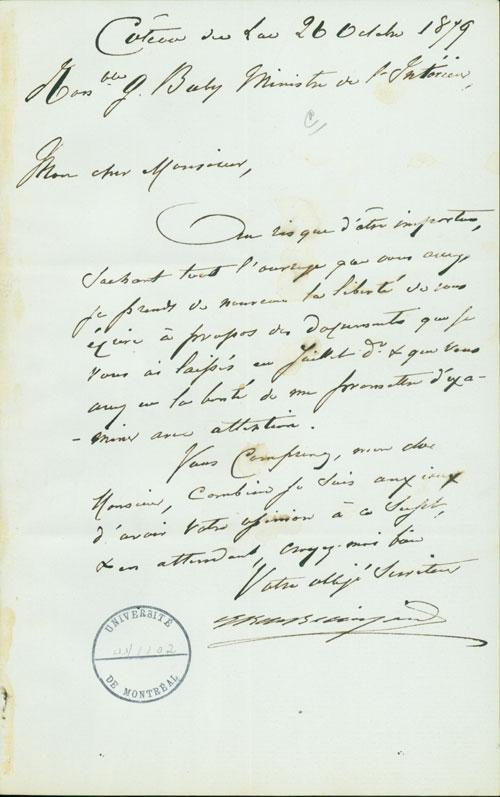 Côteau du Lac 26 Octobre 1879
Honble G. Baby Ministre de l'Intérieur,
Mon cher Monsieur,
Au risque d'être importun,
sachant tout l'ouvrage que vous avez
je prends de nouveau la liberté de vous
écrire à propos des documents que je
vous ai laissés en Juillet dr & que vous
avez eu la bonté de me promettre d'exa-
-miner avec attention.
Vous comprenez, mon cher
Monsieur, combien je suis anxieux
d'avoir votre opinion à ce sujet,
& en attendant, croyez-moi bien
Votre obligé Serviteur
UNIVERSITÉ
DE MONTRÉAL